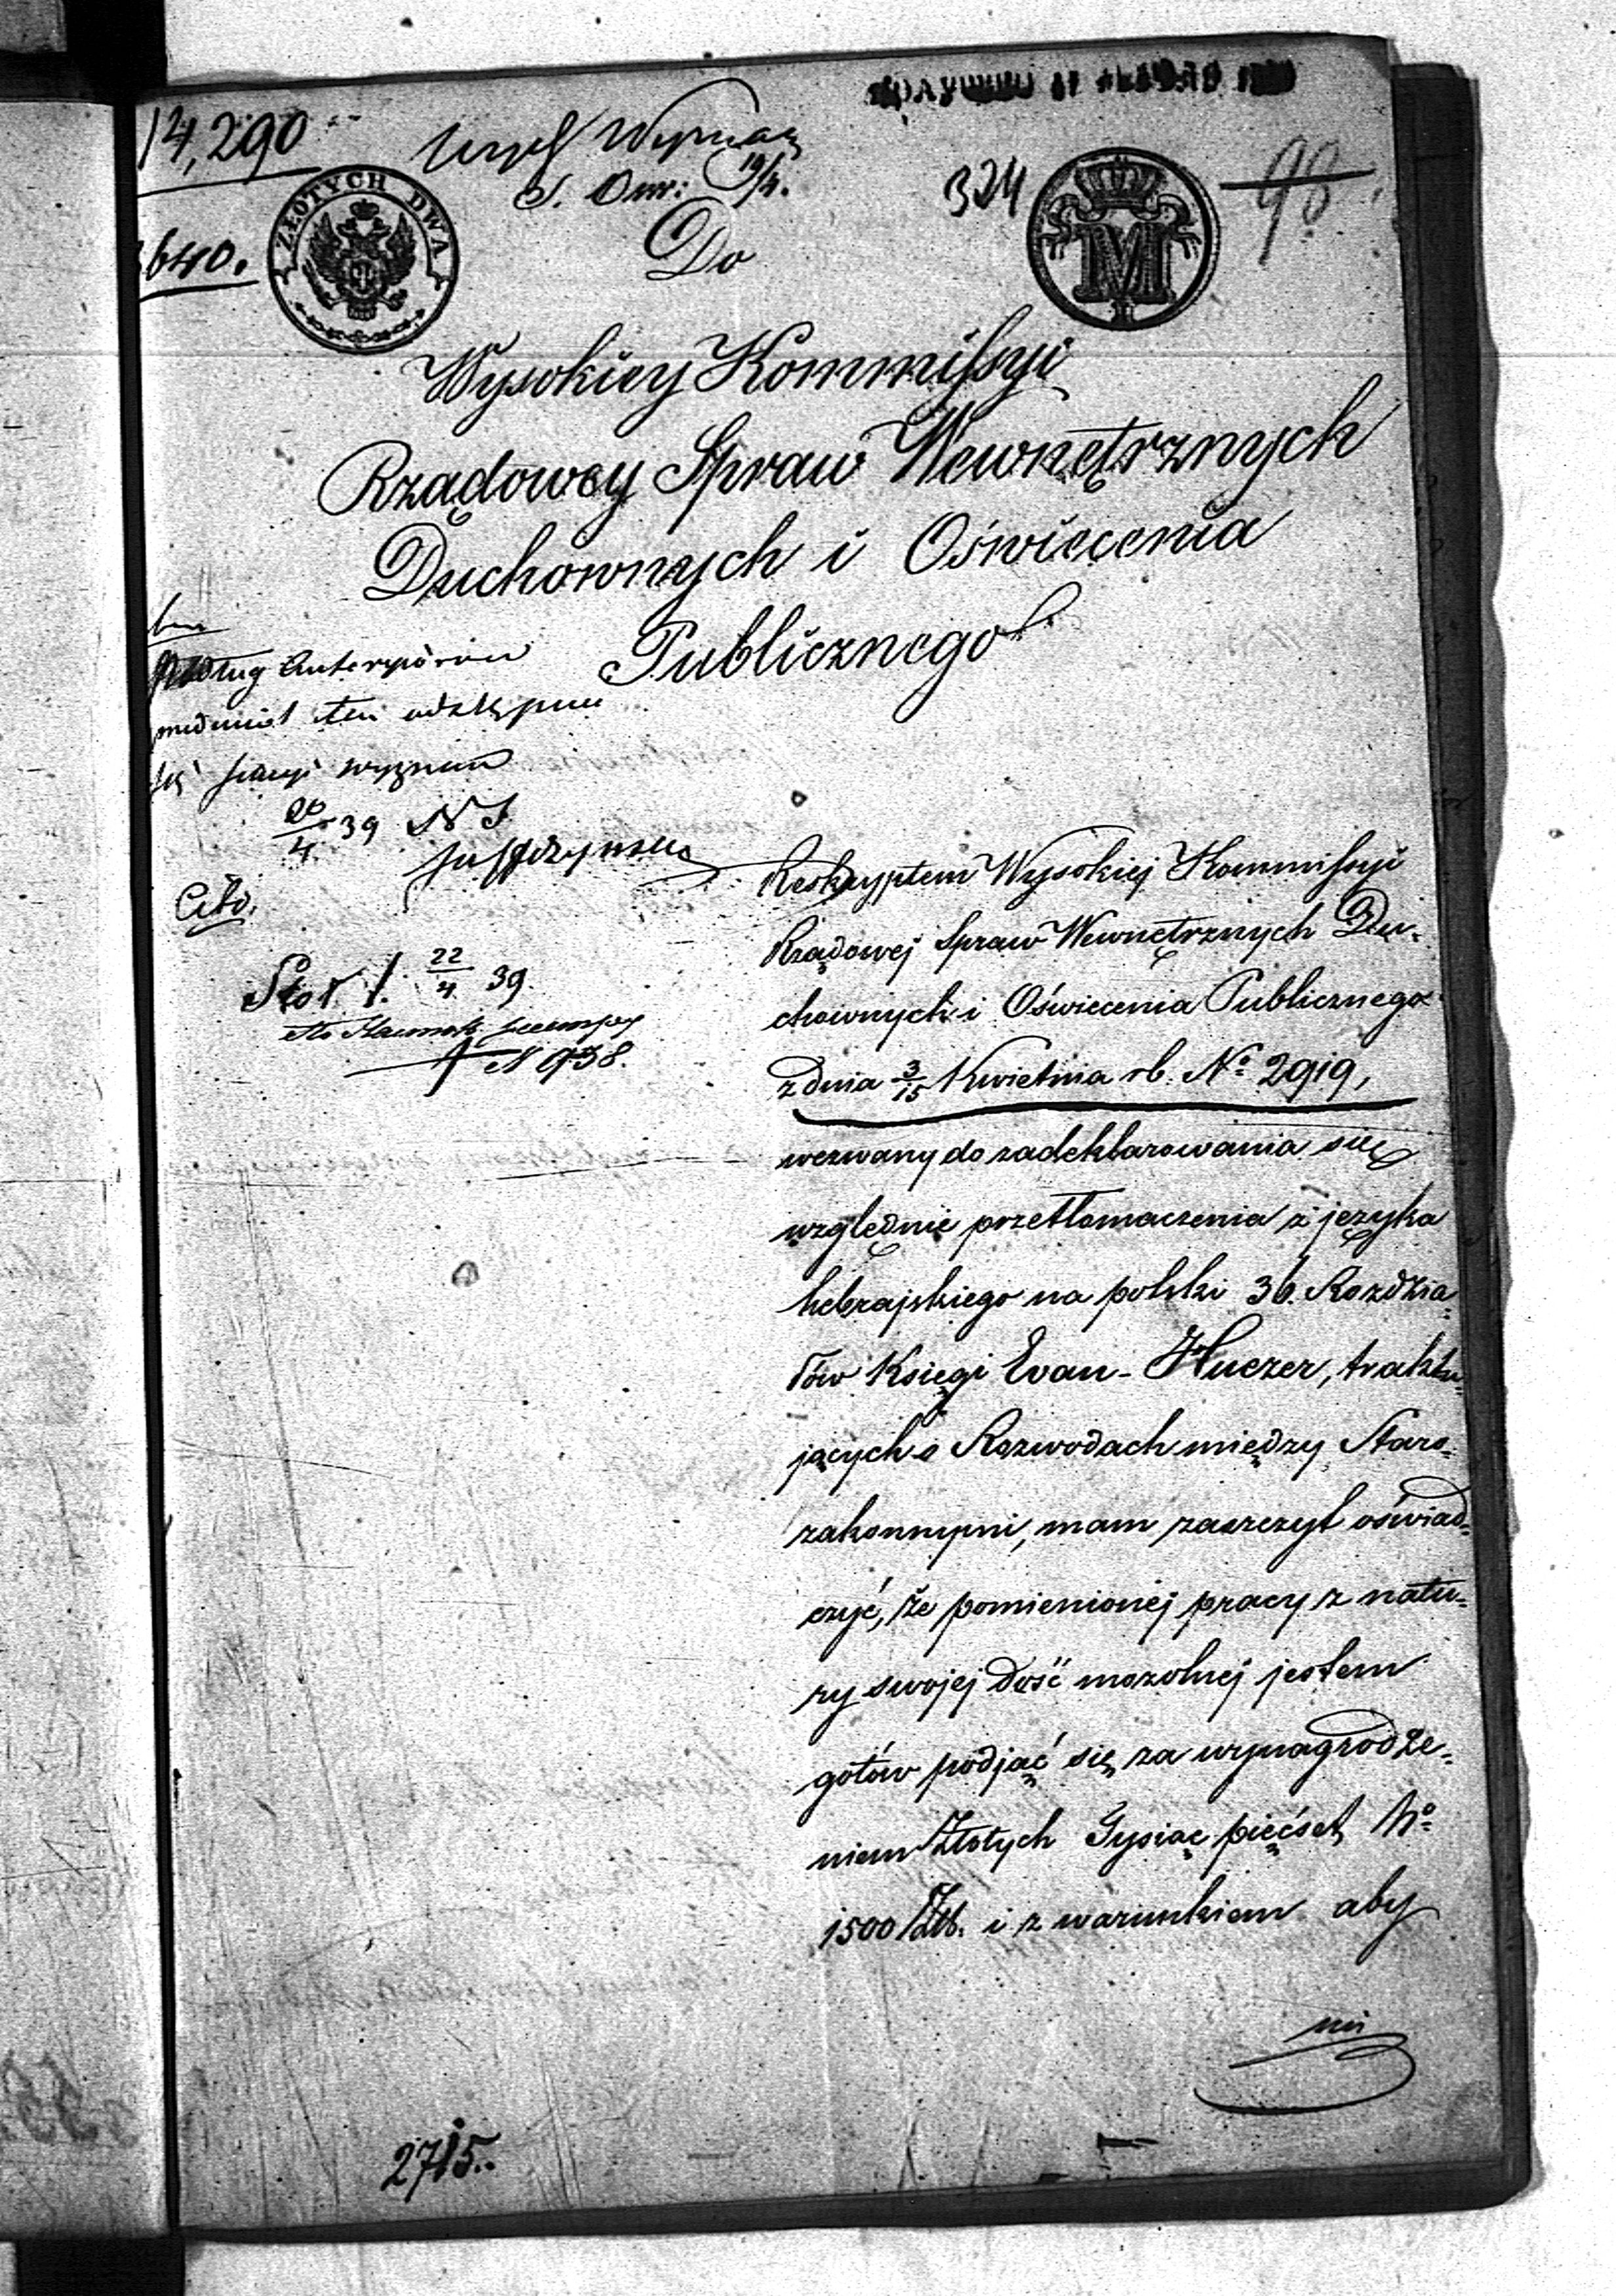 14,290
Wyznań
19/4.
324
98
ZŁOTYCH DWA
M
640.
Do
Wysokiey Kommissyi
Rządowey Spraw Wewnętrznych
Duchownych i Oświecenia
Publicznego
ten
odstępuie
Sekcyi wyznań
20/4 39
Cito.
22/4 39
N 938.
Reskryptem Wysokiej Kommissyi
Rządowej Spraw Wewnętrznych Du-
chownych i Oświecenia Publicznego
z dnia 3/15 Kwietnia rb. No 2919,
wezwany do zadeklarowania się
względnie przetłomaczenia z języka
hebrajskiego na polski 36. Rozdzia-
łów Księgi Evan-Huezer, traktu-
jących o Rozwodach między Staro-
zakonnymi, mam zaszczyt oświad-
czyć, że pomienionej pracy z natu-
ry swojej dość mozolnej jestem
gotów podjąć się za wynagrodze-
niem Złotych Tysiąc pięćset No
1500 Złt. i z warunkiem aby
mi
2715.